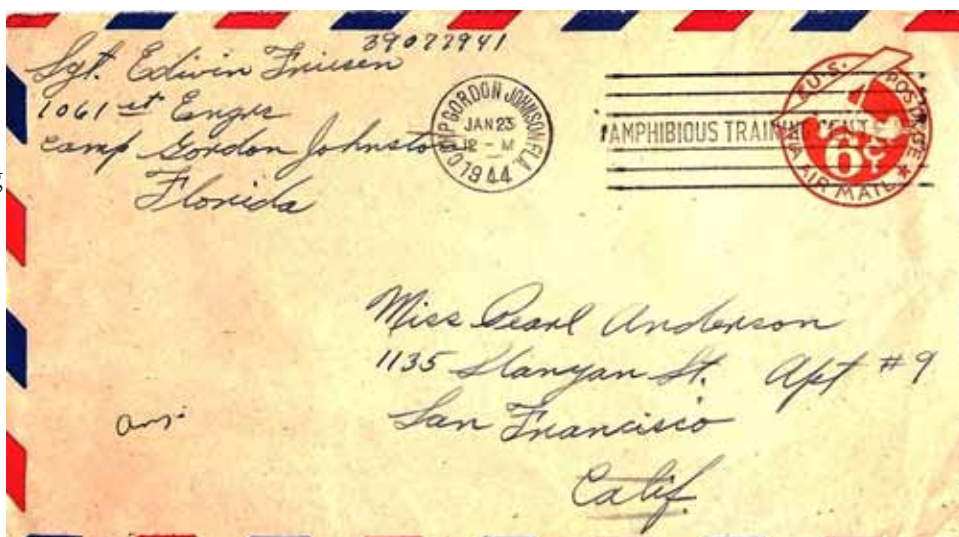 39077941
Sgt. Edwin Friesen
1061 st Engrs
Camp Gordon Johnston
Florida
CAMP GORDON JOHNSON, FLA.
JAN 23
12 - M
1944
AMPHIBIOUS TRAINING CENT
U.S. POSTAGE
6¢
VIA AIR MAIL
Miss Pearl Anderson
1135 Stanyan St. Apt #9
San Francisco
Calif.